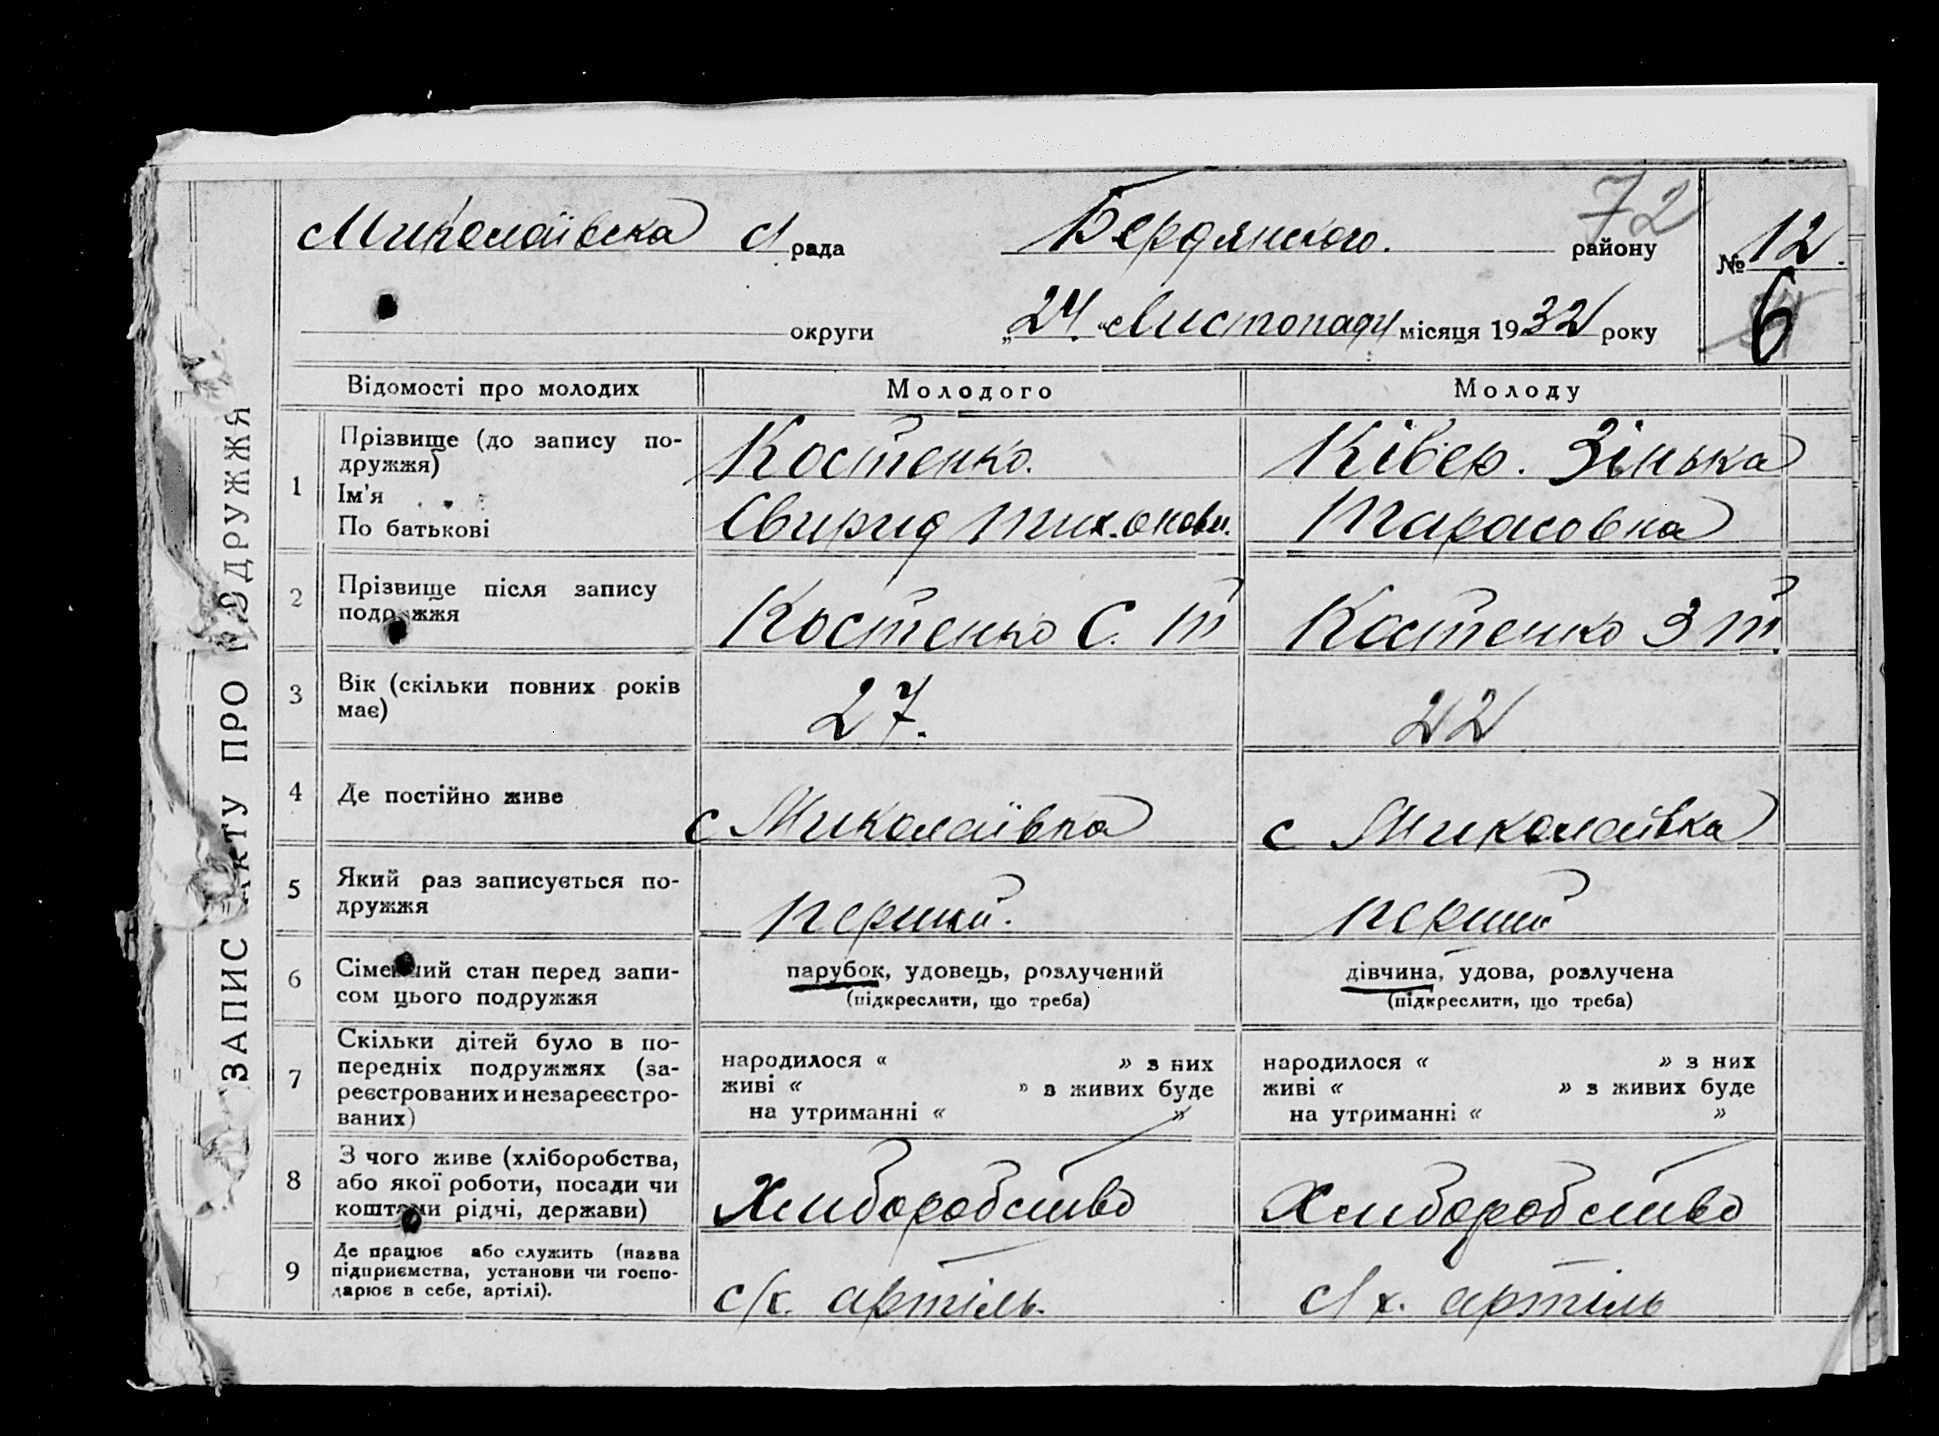 72
Миколаївска с/рада Бердянского. району
№ 12.
округи „24.“ Листопаду місяця 1932 року
6
ЗАПИС АКТУ ПРО ПОДРУЖЖЯ
Відомості про молодих Молодого Молоду
1 Прізвище (до запису по-
дружжя)
Ім'я
По батькові
Костенко.
Свирид Тихонови.
Ківер. Зінька
Тарасовна
2 Прізвище після запису
подружжя
Костенко С. Т
Костенко З Т.
3 Вік (скільки повних років
має)
27.
22
4 Де постійно живе
с Миколаївка
с Миколаївка
5 Який раз записується по-
дружжя
перший.
перший
6 Сімейний стан перед запи-
сом цього подружжя
парубок, удовець, розлучений
(підкреслити, що треба)
дівчина, удова, розлучена
(підкреслити, що треба)
7 Скільки дітей було в по-
передніх подружжях (за-
реєстрованих и незареєстро-
ваних)
народилося « » з них
живі « » з живих буде
на утриманні « »
народилося « » з них
живі « » з живих буде
на утриманні « »
8 З чого живе (хліборобства,
або якої роботи, посади чи
коштами рідні, держави)
Хлиборобство
Хлиборобство
9 Де працює або служить (назва
підприємства, установи чи госпо-
дарює в себе, артілі).
с/г. артіль.
с/х. артіль